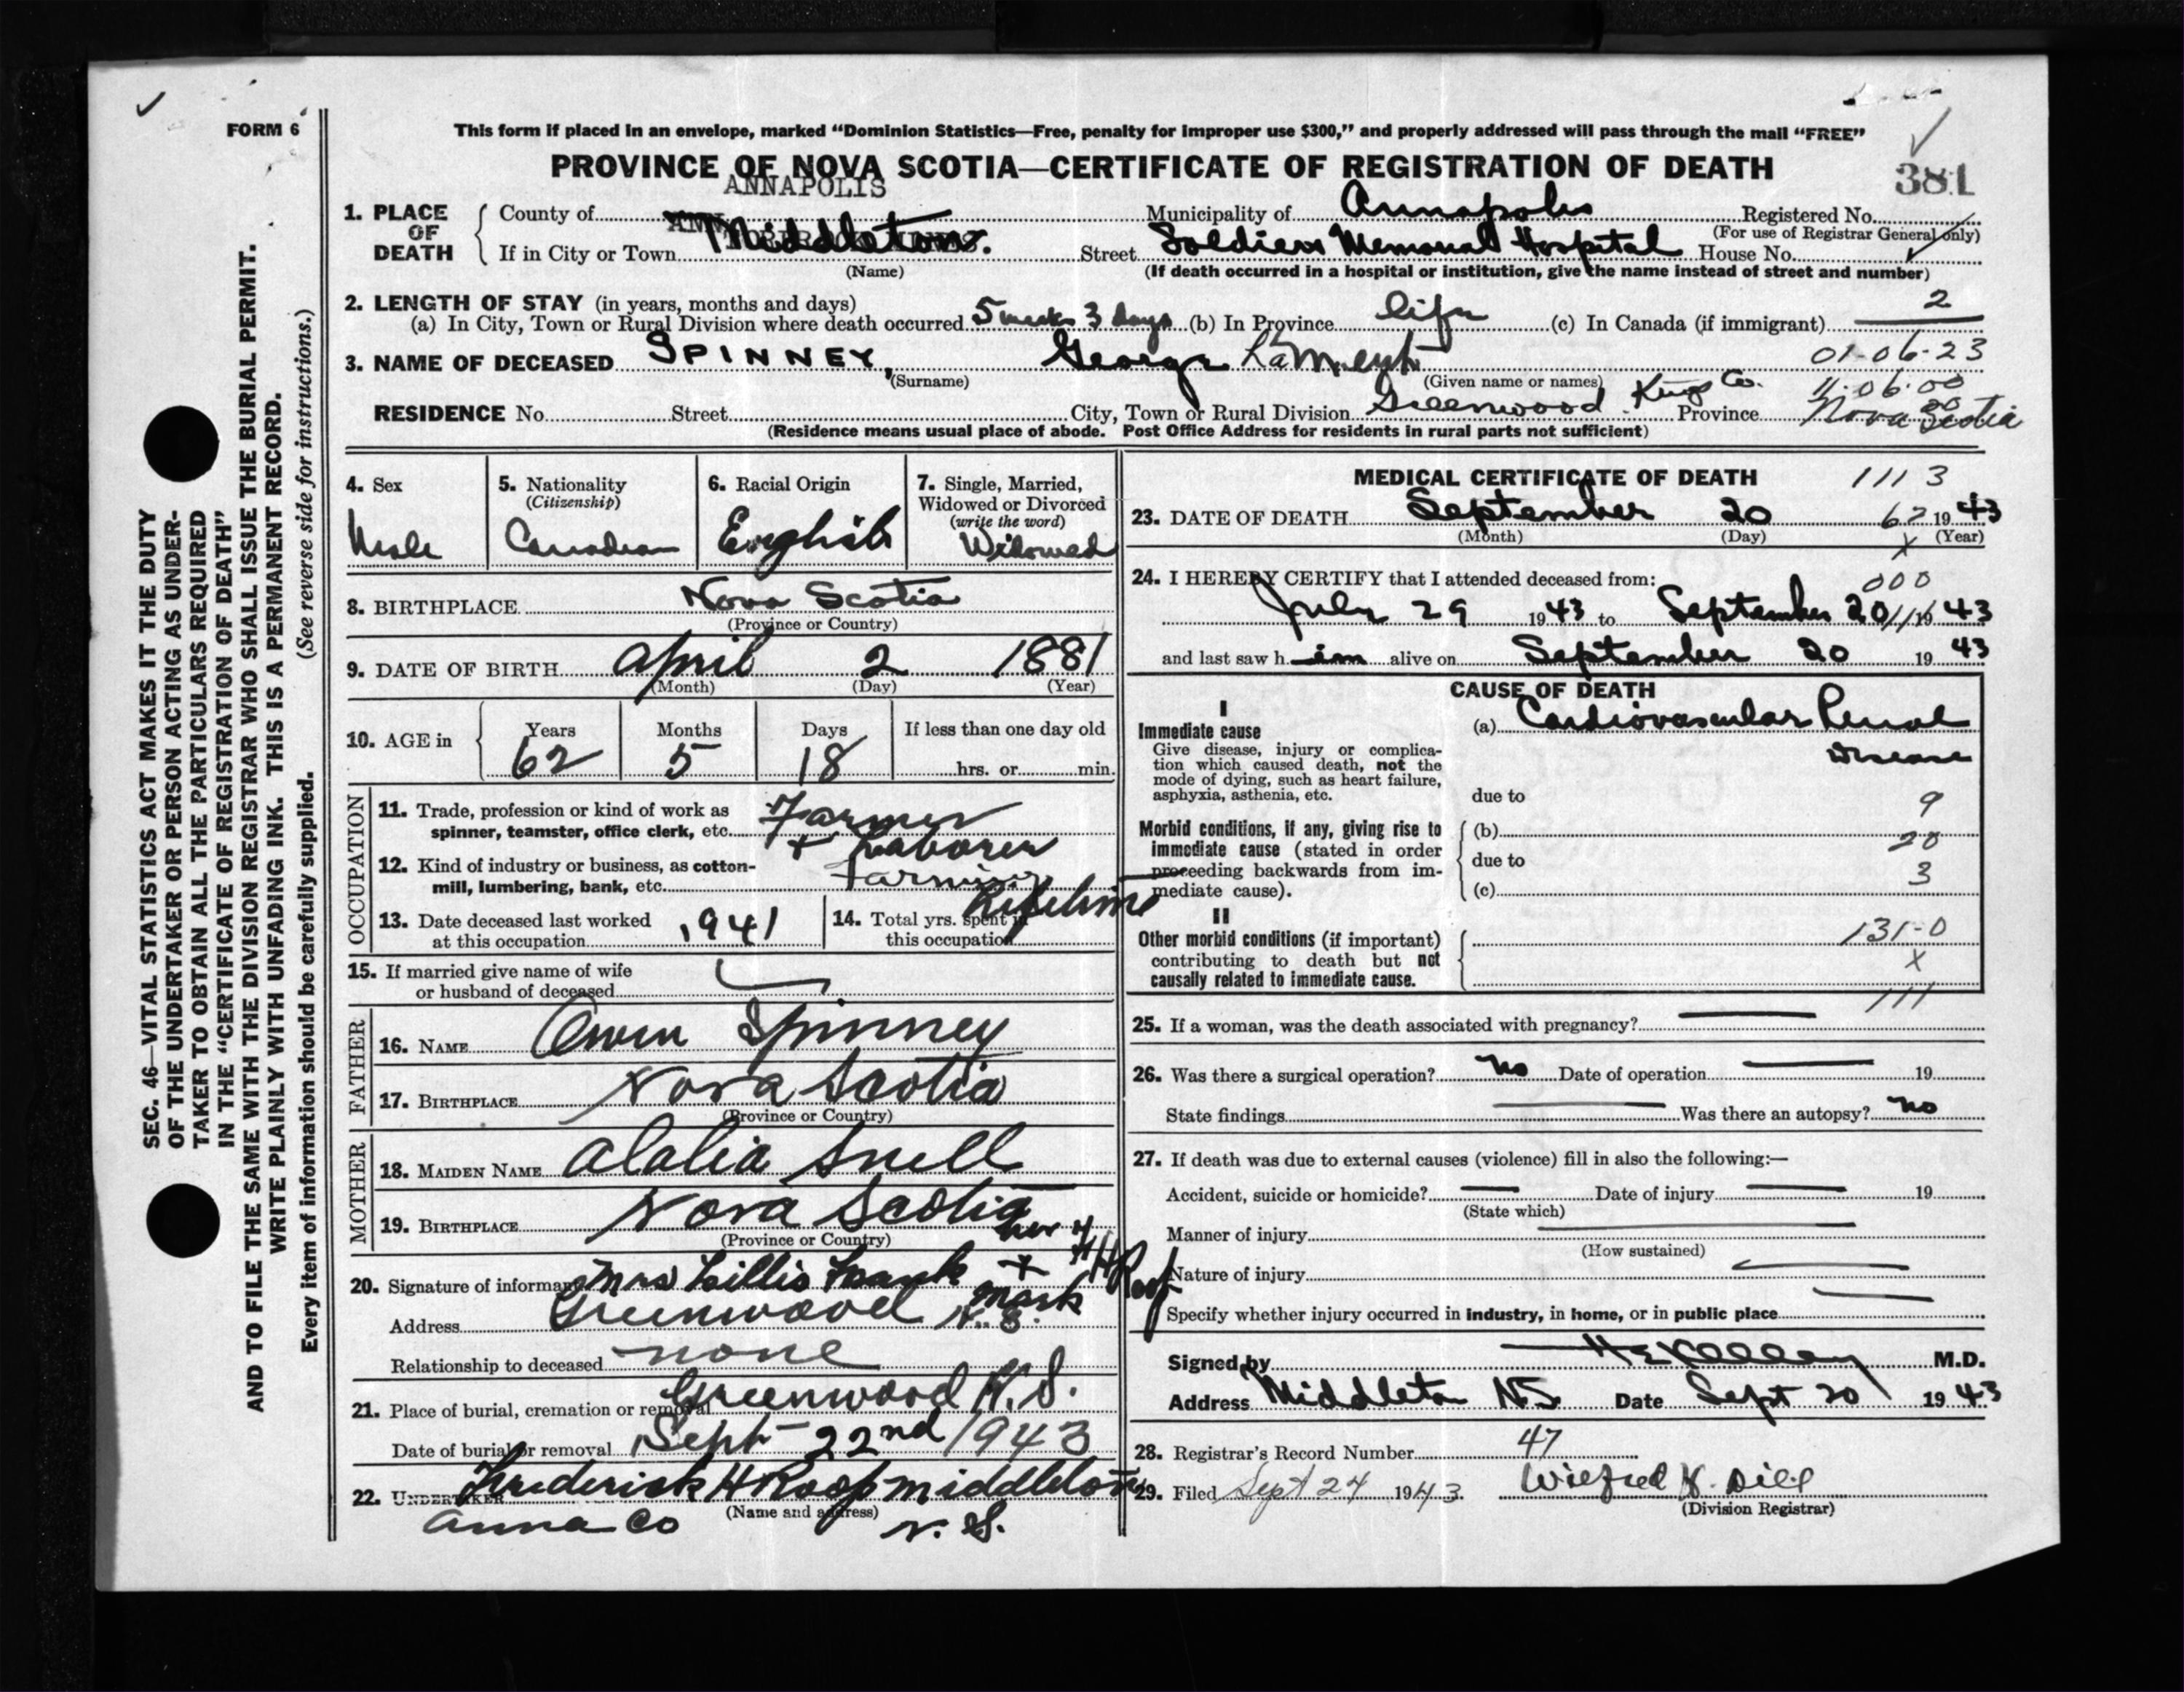 FORM 6
This form if placed in an envelope, marked "Dominion Statistics—Free, penalty for improper use $300," and properly addressed will pass through the mail "FREE"
PROVINCE OF NOVA SCOTIA—CERTIFICATE OF REGISTRATION OF DEATH
381
ANNAPOLIS
1. PLACE OF DEATH
County of Municipality of Annapolis Registered No.
(For use of Registrar General only)
If in City or Town Middleton. Street Soldiers Memorial Hospital House No.
(Name) (If death occurred in a hospital or institution, give the name instead of street and number)
2. LENGTH OF STAY (in years, months and days) 2
(a) In City, Town or Rural Division where death occurred 5 weeks 3 days (b) In Province life (c) In Canada (if immigrant)
01-06-23
3. NAME OF DECEASED SPINNEY, George LaMent
(Surname) (Given name or names)
11-06-00
RESIDENCE No. Street City, Town or Rural Division Greenwood Kings Co. Province Nova Scotia
(Residence means usual place of abode. Post Office Address for residents in rural parts not sufficient)
4. Sex
Male
5. Nationality
(Citizenship)
Canadian
6. Racial Origin
English
7. Single, Married,
Widowed or Divorced
(write the word)
Widowed
8. BIRTHPLACE Nova Scotia
(Province or Country)
9. DATE OF BIRTH April 2 1881
(Month) (Day) (Year)
10. AGE in
Years Months Days If less than one day old
62 5 18 hrs. or min.
OCCUPATION
11. Trade, profession or kind of work as
spinner, teamster, office clerk, etc. Farmer
+ Laborer
12. Kind of industry or business, as cotton-
mill, lumbering, bank, etc. Farming
13. Date deceased last worked
at this occupation 1941
14. Total yrs. spent in
this occupation Lifetime
15. If married give name of wife
or husband of deceased
FATHER
16. NAME Owen Spinney
17. BIRTHPLACE Nova Scotia
(Province or Country)
MOTHER
18. MAIDEN NAME Alalia Snell
19. BIRTHPLACE Nova Scotia
(Province or Country)
20. Signature of informant Mrs Lillis Frank her + mark F H Roop
Address Greenwood N.S.
Relationship to deceased none
21. Place of burial, cremation or removal Greenwood N.S.
Date of burial or removal Sept 22nd 1943
22. UNDERTAKER Frederick H Roop Middleton
(Name and address)
Anna Co N.S.
MEDICAL CERTIFICATE OF DEATH 1113
23. DATE OF DEATH September 20 62 1943
(Month) (Day) (Year)
X
24. I HEREBY CERTIFY that I attended deceased from: 000
July 29 1943 to September 20 1943
and last saw him alive on September 20 1943
CAUSE OF DEATH
I
Immediate cause
Give disease, injury or complica-
tion which caused death, not the
mode of dying, such as heart failure,
asphyxia, asthenia, etc.
(a) Cardiovascular Renal
Disease
due to 9
Morbid conditions, if any, giving rise to
immediate cause (stated in order
proceeding backwards from im-
mediate cause).
(b) 20
due to
(c) 3
II
Other morbid conditions (if important)
contributing to death but not
causally related to immediate cause.
131-0
X
111
25. If a woman, was the death associated with pregnancy?
26. Was there a surgical operation? No Date of operation 19
State findings Was there an autopsy? No
27. If death was due to external causes (violence) fill in also the following:—
Accident, suicide or homicide? Date of injury 19
(State which)
Manner of injury
(How sustained)
Nature of injury
Specify whether injury occurred in industry, in home, or in public place
Signed by H E Kelley M.D.
Address Middleton N.S. Date Sept 20 1943
28. Registrar's Record Number 47
29. Filed Sept 24 1943. Wilfred H. Dill
(Division Registrar)
SEC. 46—VITAL STATISTICS ACT MAKES IT THE DUTY
OF THE UNDERTAKER OR PERSON ACTING AS UNDER-
TAKER TO OBTAIN ALL THE PARTICULARS REQUIRED
IN THE "CERTIFICATE OF REGISTRATION OF DEATH"
AND TO FILE THE SAME WITH THE DIVISION REGISTRAR WHO SHALL ISSUE THE BURIAL PERMIT.
WRITE PLAINLY WITH UNFADING INK. THIS IS A PERMANENT RECORD.
Every item of information should be carefully supplied. (See reverse side for instructions.)